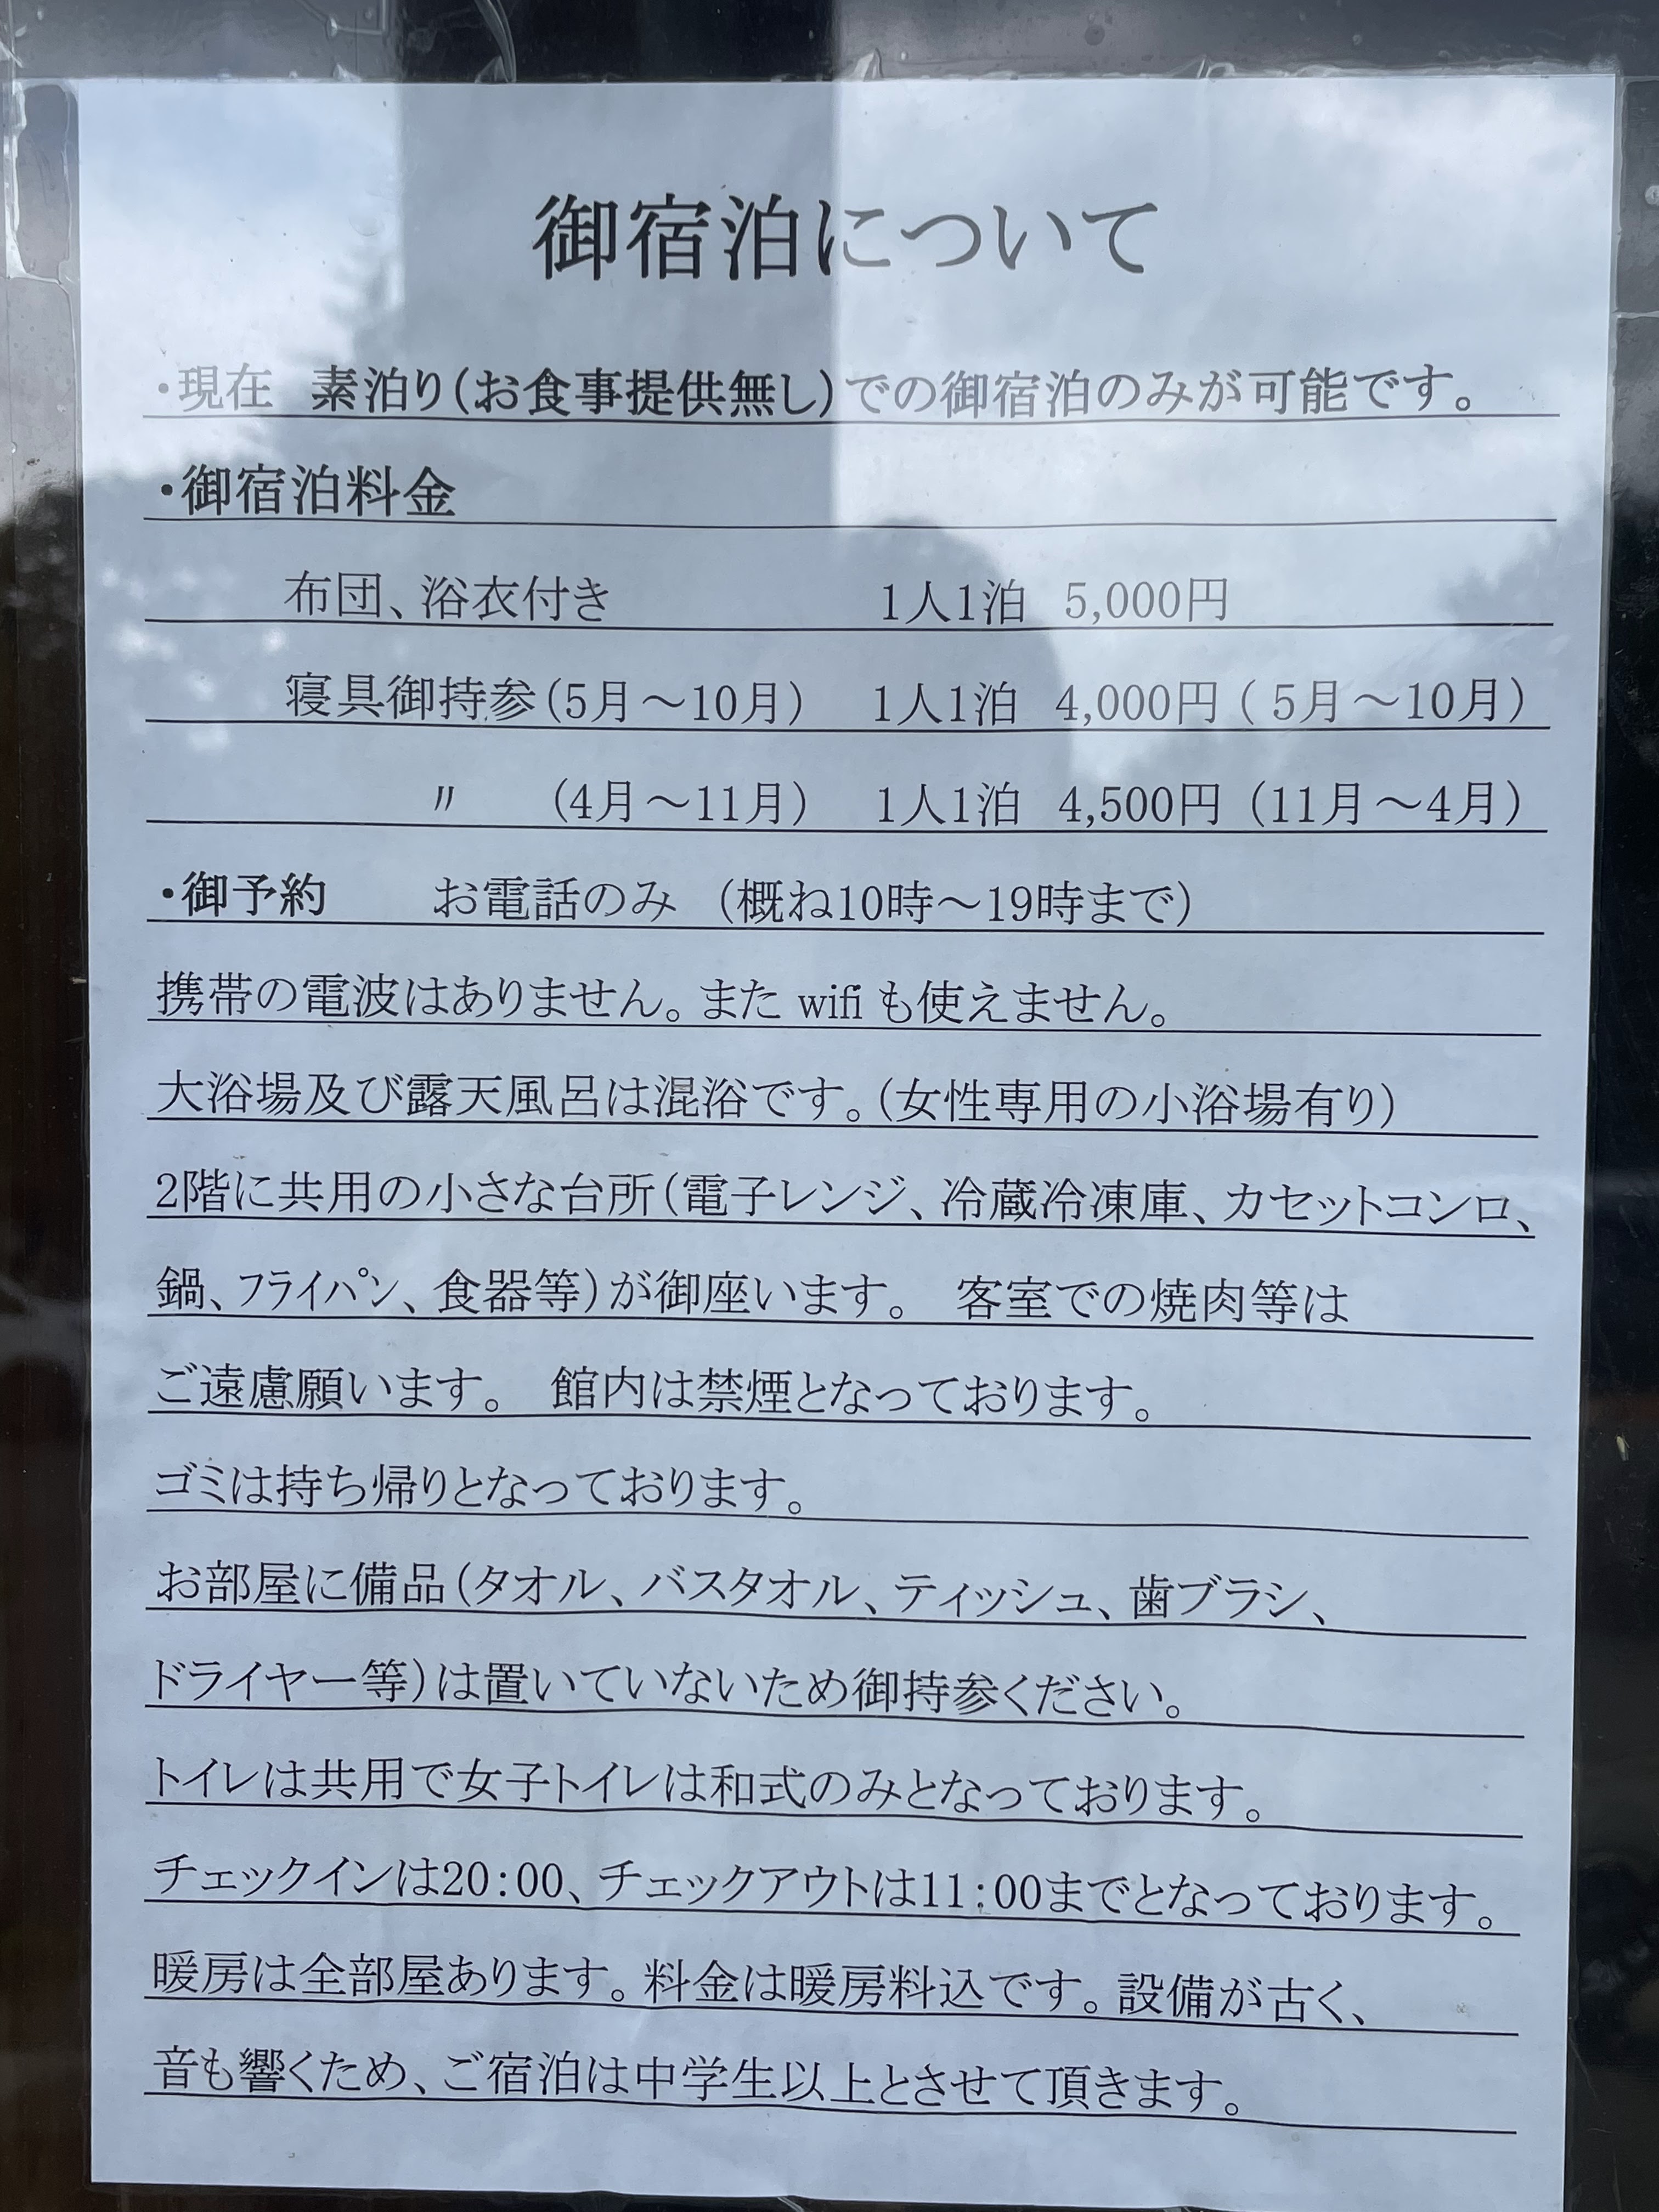 御宿泊について
・現在　素泊り（お食事提供無し）での御宿泊のみが可能です。
・御宿泊料金
布団、浴衣付き　1人1泊　5,000円
寝具御持参（5月～10月）　1人1泊　4,000円（ 5月～10月）
〃　（4月～11月）　1人1泊　4,500円（11月～4月）
・御予約　お電話のみ　（概ね10時～19時まで）
携帯の電波はありません。また wifi も使えません。
大浴場及び露天風呂は混浴です。（女性専用の小浴場有り）
2階に共用の小さな台所（電子レンジ、冷蔵冷凍庫、カセットコンロ、
鍋、フライパン、食器等）が御座います。　客室での焼肉等は
ご遠慮願います。　館内は禁煙となっております。
ゴミは持ち帰りとなっております。
お部屋に備品（タオル、バスタオル、ティッシュ、歯ブラシ、
ドライヤー等）は置いていないため御持参ください。
トイレは共用で女子トイレは和式のみとなっております。
チェックインは20：00、チェックアウトは11：00までとなっております。
暖房は全部屋あります。料金は暖房料込です。設備が古く、
音も響くため、ご宿泊は中学生以上とさせて頂きます。